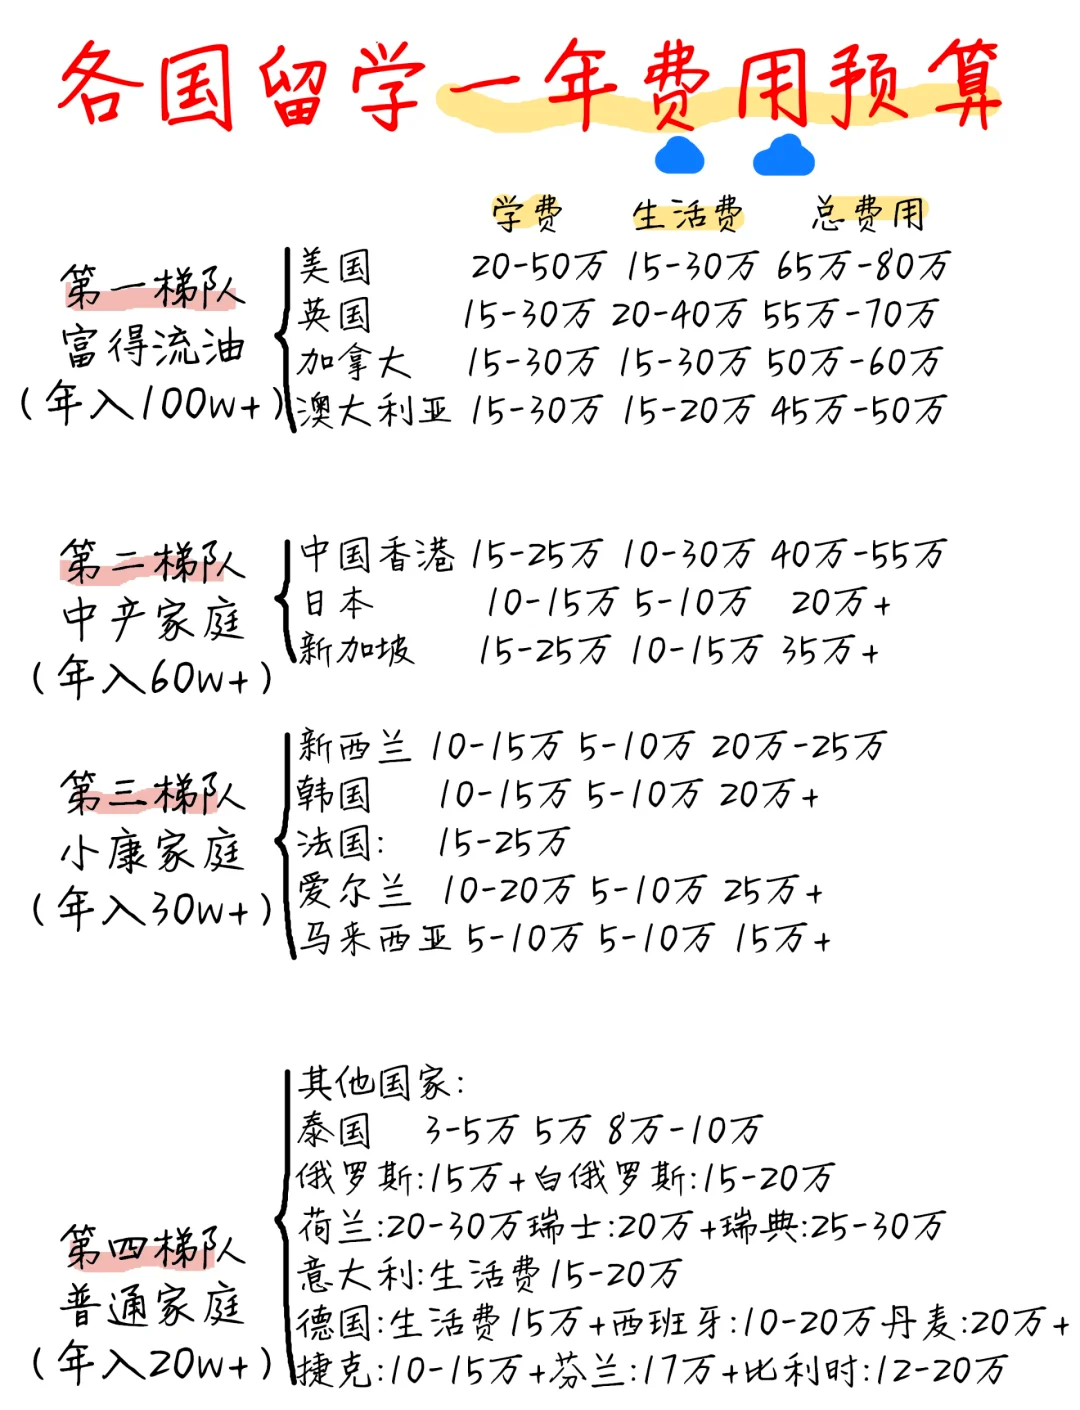 各国留学一年费用预算
学费 生活费 总费用
第一梯队
富得流油
(年入100w+)
美国 20-50万 15-30万 65万-80万
英国 15-30万 20-40万 55万-70万
加拿大 15-30万 15-30万 50万-60万
澳大利亚 15-30万 15-20万 45万-50万
第二梯队
中产家庭
(年入60w+)
中国香港 15-25万 10-30万 40万-55万
日本 10-15万 5-10万 20万+
新加坡 15-25万 10-15万 35万+
第三梯队
小康家庭
(年入30w+)
新西兰 10-15万 5-10万 20万-25万
韩国 10-15万 5-10万 20万+
法国: 15-25万
爱尔兰 10-20万 5-10万 25万+
马来西亚 5-10万 5-10万 15万+
第四梯队
普通家庭
(年入20w+)
其他国家:
泰国 3-5万 5万 8万-10万
俄罗斯:15万+白俄罗斯:15-20万
荷兰:20-30万瑞士:20万+瑞典:25-30万
意大利:生活费15-20万
德国:生活费15万+西班牙:10-20万丹麦:20万+
捷克:10-15万+芬兰:17万+比利时:12-20万